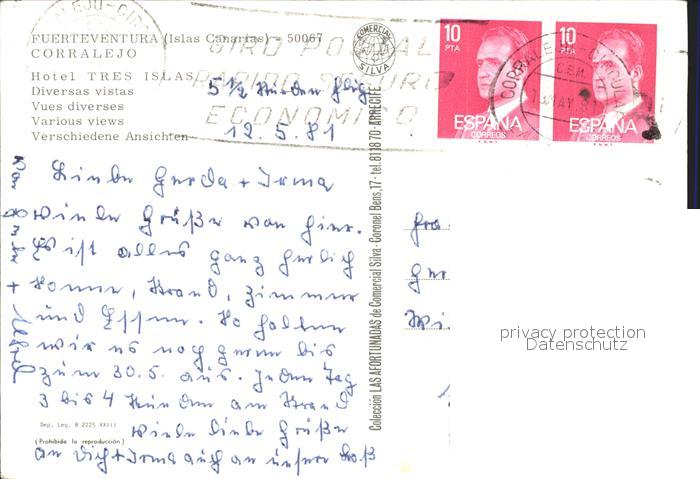 FUERTEVENTURA (Islas Canarias) - 50067
CORRALEJO
Hotel TRES ISLAS
Diversas vistas
Vues diverses
Various views
Verschiedene Ansichten
5 1/2 Stunden Flug
12.5.81
GIRO POSTAL
RAPIDO SEGURO
ECONOMICO
COMERCIAL
SILVA
10
PTA
ESPAÑA
CORREOS
F.N.M.T.
10
PTA
ESPAÑA
CORREOS
F.N.M.T.
13 MAY 81
Liebe Gerda + Irma
Viele Grüße von hier.
Es ist alles ganz herrlich
Sonne, Strand, Zimmer
und Essen. So halten
wir es noch gerne bis
zum 30.5. aus. Jeden Tag
3 bis 4 Stunden am Strand
Viele liebe Grüße
an Dich + Irma auch an unsern
Dep. Leg. B 2225 XXIII
(Prohibida la reproducción)
Colección LAS AFORTUNADAS de Comercial Silva - Coronel Bens, 17 - tel. 811870 - ARRECIFE
Fra
Ger
Wi
privacy protection
Datenschutz